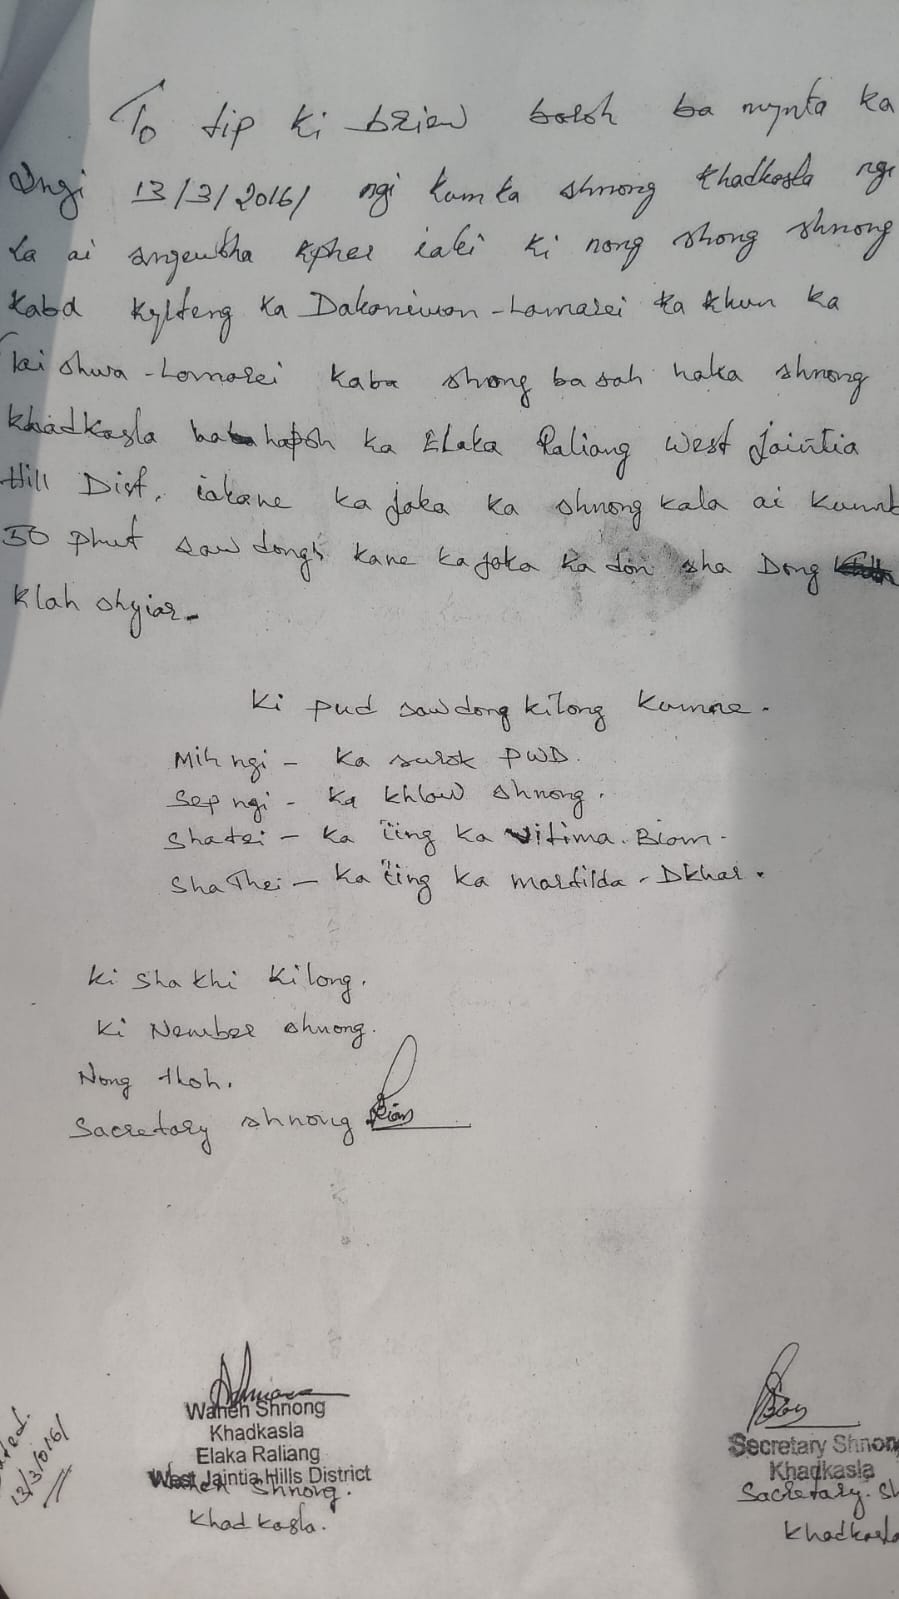 To tip ki briew baroh ba mynta ka
Sngi 13/3/2016/ ngi kum ka shnong Khadkasla ngi
la ai kpher iaki ki nong shong shnong
kaba kylteng ka Dakaniwon-Lamarei ka khun ka
Tei shwa-Lamarei kaba shong ba sah haka shnong
Khadkasla hapoh ka Elaka Raliang West Jaintia
Hill Dist, iakane ka jaka ka shnong kala ai kumba
50 phut sawdong kane ka jaka ka don sha Dong
Klah shyiar-
Ki pud sawdong kilong kumne.
Mih ngi - ka surok PWD.
Sep ngi - ka khlaw shnong.
Shatei - ka ïing ka Vitima. Biam-
Sha Thei - ka ïing ka Martilda - Dkhar.
Ki sha khi kilong.
Ki Nember shnong.
Nong thoh.
Sacretary shnong
Dated.
13/3/016/
Waheh Shnong
Khadkasla
Elaka Raliang
West Jaintia Hills District
Waheh Shnong.
Khadkasla.
Secretary Shnon
Khadkasla
Sacretary. Sh
Khadkasla